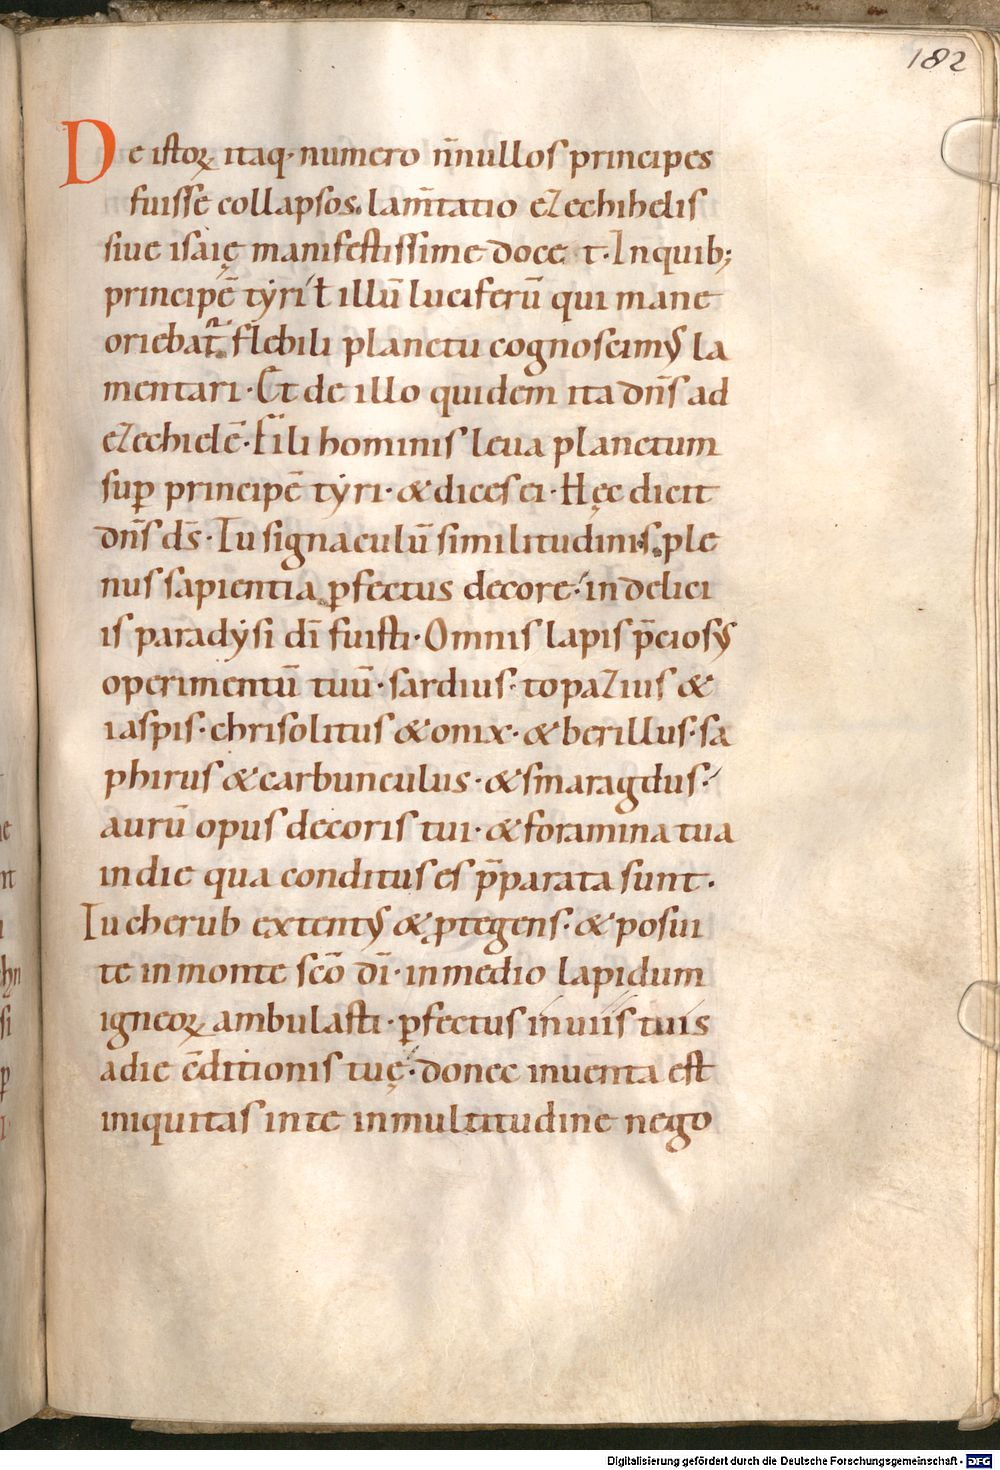 182
De istoꝝ itaq· numero n̄nullos principes
fuisse collapsos. lam̄tatio ezechihelis
siue isaię manifestissime docet. Inquib;
principē tyri ł illū luciferū qui mane
oriebat̄. flebili planctu cognoscimꝰ la
mentari. Et de illo quidem ita dn̄s ad
ezechielē. Fili hominis leua planctum
suꝑ principē tyri. & dices ei. Hęc dicit
dn̄s ds̄. Tu signaculū similitudinis. ple
nus sapientia ꝑfectus decore. in delici
is paradysi dī fuisti. Omnis lapis p̄ciosꝰ
operimentū tuū. sardius. topazius &
iaspis. chrisolitus & onix. & berillus. sa
phirus & carbunculus. & smaragdus.
aurū opus decoris tui. & foramina tua
indie qua conditus es p̄parata sunt.
Tu cherub extentꝰ & ꝓtegens. & posui
te in monte scō dī. in medio lapidum
igneoꝝ ambulasti. ꝑfectus in uiis tuis
adie c̄ditionis tuę. donec inuenta est
iniquitas inte inmultitudine nego
Digitalisierung gefördert durch die Deutsche Forschungsgemeinschaft - DFG